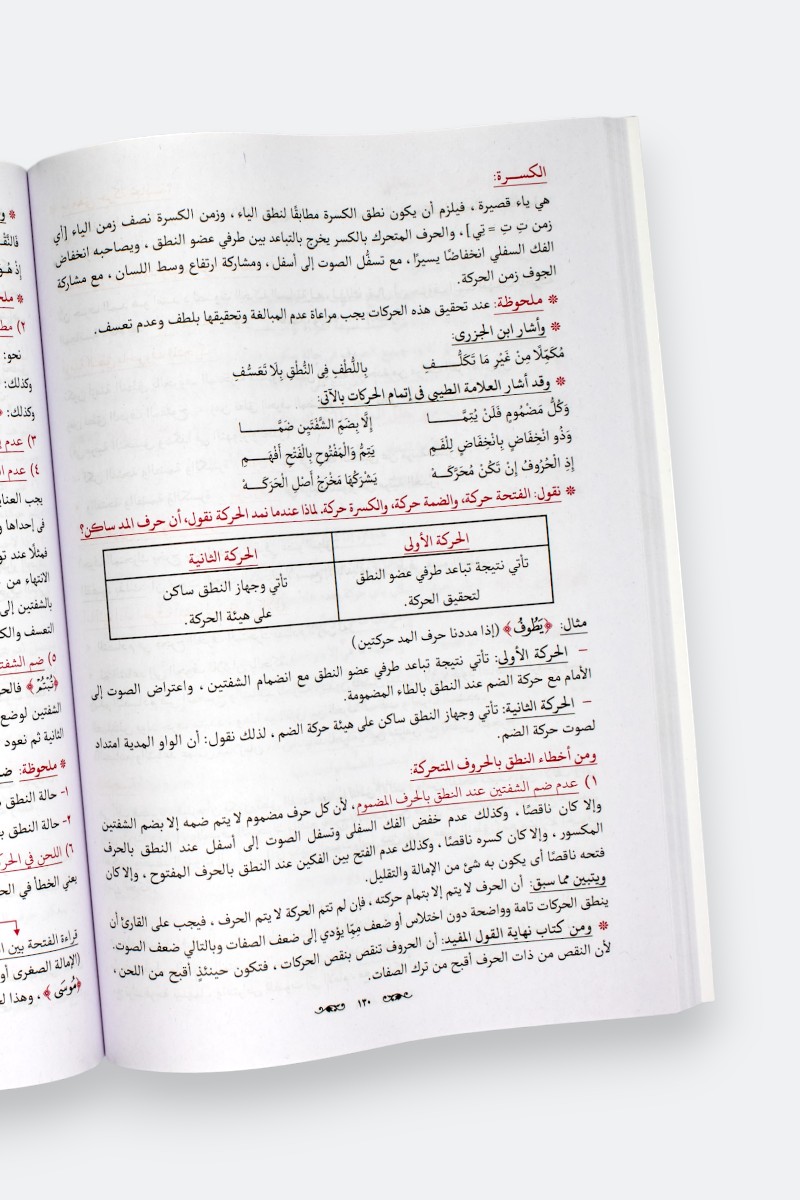 الكســـرة:
هي ياء قصيرة ، فيلزم أن يكون نطق الكسرة مطابقًا لنطق الياء ، وزمن الكسرة نصف زمن الياء [أي
زمن تِ تِ = تِي] ، والحرف المتحرك بالكسر يخرج بالتباعد بين طرفي عضو النطق ، ويصاحبه انخفاض
الفك السفلي انخفاضًا يسيرًا ، مع تسفُّل الصوت إلى أسفل ، ومشاركة ارتفاع وسط اللسان ، مع مشاركة
الجوف زمن الحركة.
* ملحوظة: عند تحقيق هذه الحركات يجب مراعاة عدم المبالغة وتحقيقها بلطف وعدم تعسف.
* وأشار ابن الجزري:
مُكَمِّلًا مِنْ غَيْرِ مَا تَكَلُّـــــفِ بِاللُّطْفِ فِي النُّطْقِ بِلَا تَعَسُّفِ
* وقد أشار العلامة الطيبي في إتمام الحركات بالآتي:
وَكُلُّ مَضْمُومٍ فَلَنْ يُتِمَّـــــا إِلَّا بِضَمِّ الشَّفَتَيْنِ ضَمَّـــــا
وَذُو انْخِفَاضٍ بِانْخِفَاضٍ لِلْفَمِ يَتِمُّ وَالْمَفْتُوحِ بِالْفَتْحِ أفْهَـــمِ
إِذِ الْحُرُوفُ إِنْ تَكُنْ مُحَرَّكَـــهْ يَشْرَكُهَا مَخْرَجُ أَصْلِ الْحَرَكَـــهْ
* نقول: الفتحة حركة، والضمة حركة، والكسرة حركة. لماذا عندما نمد الحركة نقول، أن حرف المد ساكن؟
الحركة الأولى الحركة الثانية
تأتي نتيجة تباعد طرفي عضو النطق تأتي وجهاز النطق ساكن
لتحقيق الحركة. على هيئة الحركة.
مثال: ﴿يَطُوفُ﴾ (إذا مددنا حرف المد حركتين)
– الحركة الأولى: تأتي نتيجة تباعد طرفي عضو النطق مع انضمام الشفتين ، واعتراض الصوت إلى
الأمام مع حركة الضم عند النطق بالطاء المضمومة.
– الحركة الثانية: تأتي وجهاز النطق ساكن على هيئة حركة الضم ، لذلك نقول: أن الواو المدية امتداد
لصوت حركة الضم.
ومن أخطاء النطق بالحروف المتحركة:
١) عدم ضم الشفتين عند النطق بالحرف المضموم، لأن كل حرف مضموم لا يتم ضمه إلا بضم الشفتين
وإلا كان ناقصًا ، وكذلك عدم خفض الفك السفلى وتسفل الصوت إلى أسفل عند النطق بالحرف
المكسور ، وإلا كان كسره ناقصًا ، وكذلك عدم الفتح بين الفكين عند النطق بالحرف المفتوح ، وإلا كان
فتحه ناقصًا أى يكون به شئ من الإمالة والتقليل.
ويتبين مما سبق: أن الحرف لا يتم إلا بتمام حركته ، فإن لم تتم الحركة لا يتم الحرف ، فيجب على القارئ أن
ينطق الحركات تامة وواضحة دون اختلاس أو ضعف مِمّا يؤدي إلى ضعف الصفات وبالتالي ضعف الصوت.
* ومن كتاب نهاية القول المفيد: أن الحروف تنقص بنقص الحركات ، فتكون حينئذٍ أقبح من اللحن ،
لأن النقص من ذات الحرف أقبح من ترك الصفات.
١٢٠
٢)
نحو:
وكذلك:
وكذلك:
٣) عدم
٤) عدم
يجب العناية
في إحداها
فمثلًا عند
الانتهاء من
بالشفتين إلى
التعسف
٥) ضم
الشفتين لوضع
الثانية ثم نعود
* ملحوظة:
١- حالة النطق
٢- حالة النطق
٦) اللحن في
يعني الخطأ في
قراءة الفتحة بين
(الإمالة الصغرى أو
﴿مُوسَى﴾ ، وهذا